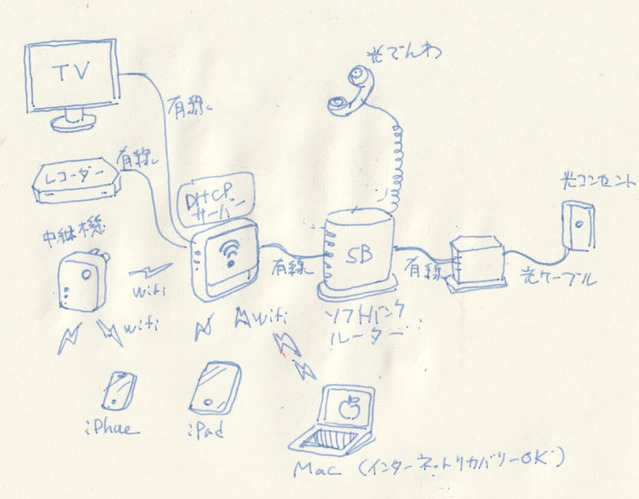 光でんわ
TV
有線
有線
レコーダー
DHCP
サーバー
光コンセント
中継機
SB
wifi
有線
有線
光ケーブル
wifi
wifi
ソフトバンク
ルーター
iPhoe
iPad
Mac (インターネットリカバリーOK)